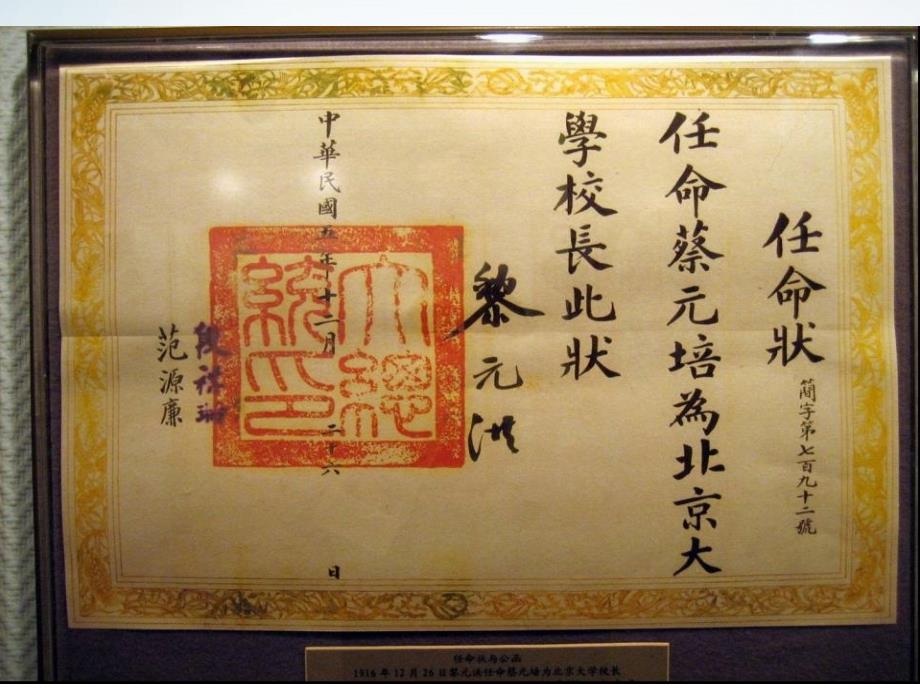 任命狀
簡字第七百九十二號
任命蔡元培為北京大
學校長此狀
黎元洪
大總
統印
中華民國五年十二月二十六日
段祺瑞
范源廉
任命状与公函
1916 年 12 月 26 日黎元洪任命蔡元培为北京大学校长